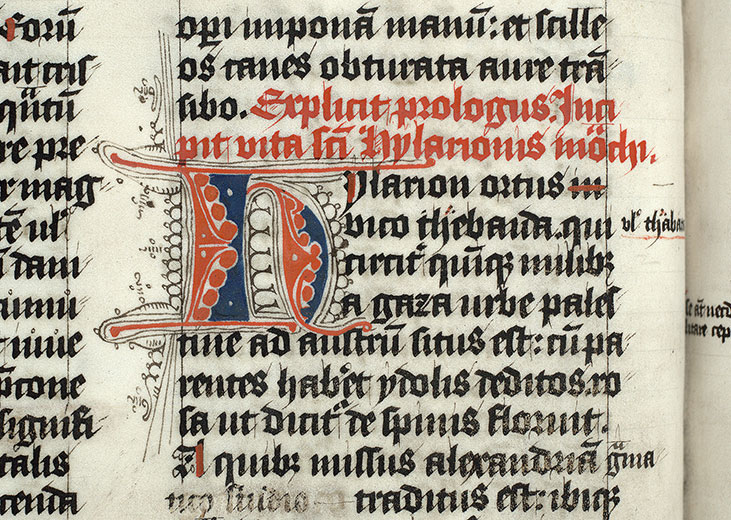 forū
ait cris
re pre
r mag
tē ulͦ
dani
ptone
signifi
talis
cenda
opi imponā manū: et scille
os canes obturata aure trā
sibo. Explicit prologus. Inci
pit vita scī Hylarionis mōchi.
Hylarion ortus in
vico thebaida. qui
circit̾ quīqꝫ milibꝫ
a gaza urbe pales
tine ad austrū situs est: cū pa
rentes hab̾et ydolis deditos. ro
sa ut dicit̾ de spinis floruit.
A quibꝫ missus alexandriā gͣma
tico studio traditus est: ibiqꝫ
vlͦ thaba